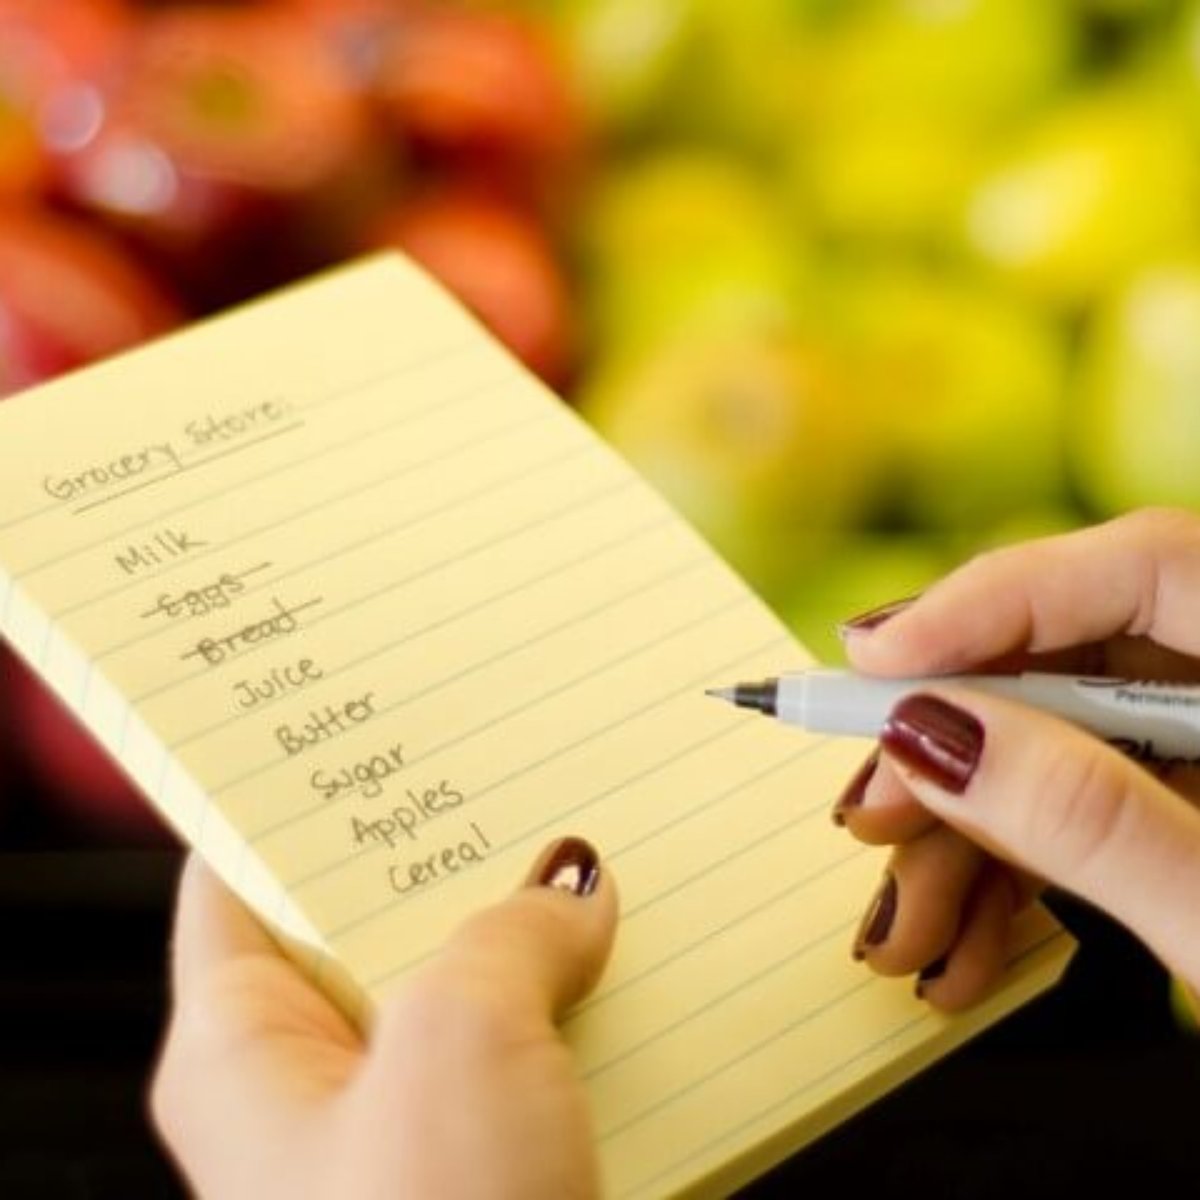 Grocery Store:
Milk
Eggs
Bread
Juice
Butter
Sugar
Apples
Cereal
Permanent